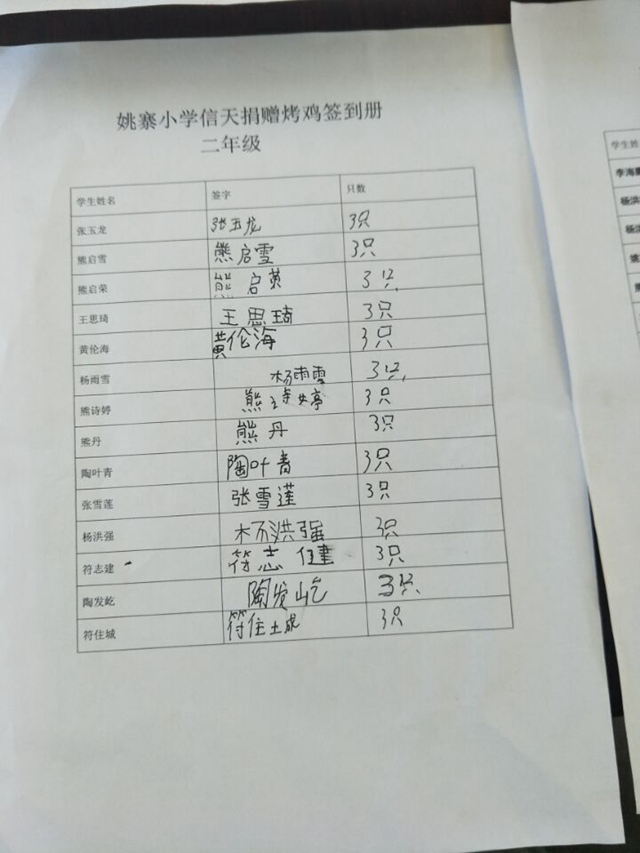 姚寨小学信天捐赠烤鸡签到册
二年级
学生姓名 签字 只数
张玉龙 张玉龙 3只
熊启雪 熊启雪 3只
熊启荣 熊启荣 3只
王思琦 王思琦 3只
黄伦海 黄伦海 3只
杨雨雪 杨雨雪 3只
熊诗婷 熊诗婷 3只
熊丹 熊丹 3只
陶叶青 陶叶青 3只
张雪莲 张雪莲 3只
杨洪强 杨洪强 3只
符志建 符志健 3只
陶发屹 陶发屹 3只
符住城 符住城 3只
学生姓
李海
杨洪
杨